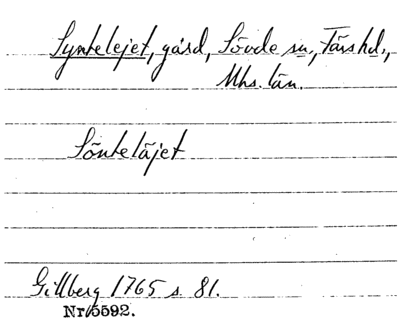 Syntelejet, gård, Sövde sn, Färs hd.,
Mhs. län.
Sönteläjet
Gillberg 1765 s. 81.
Nr 5592.